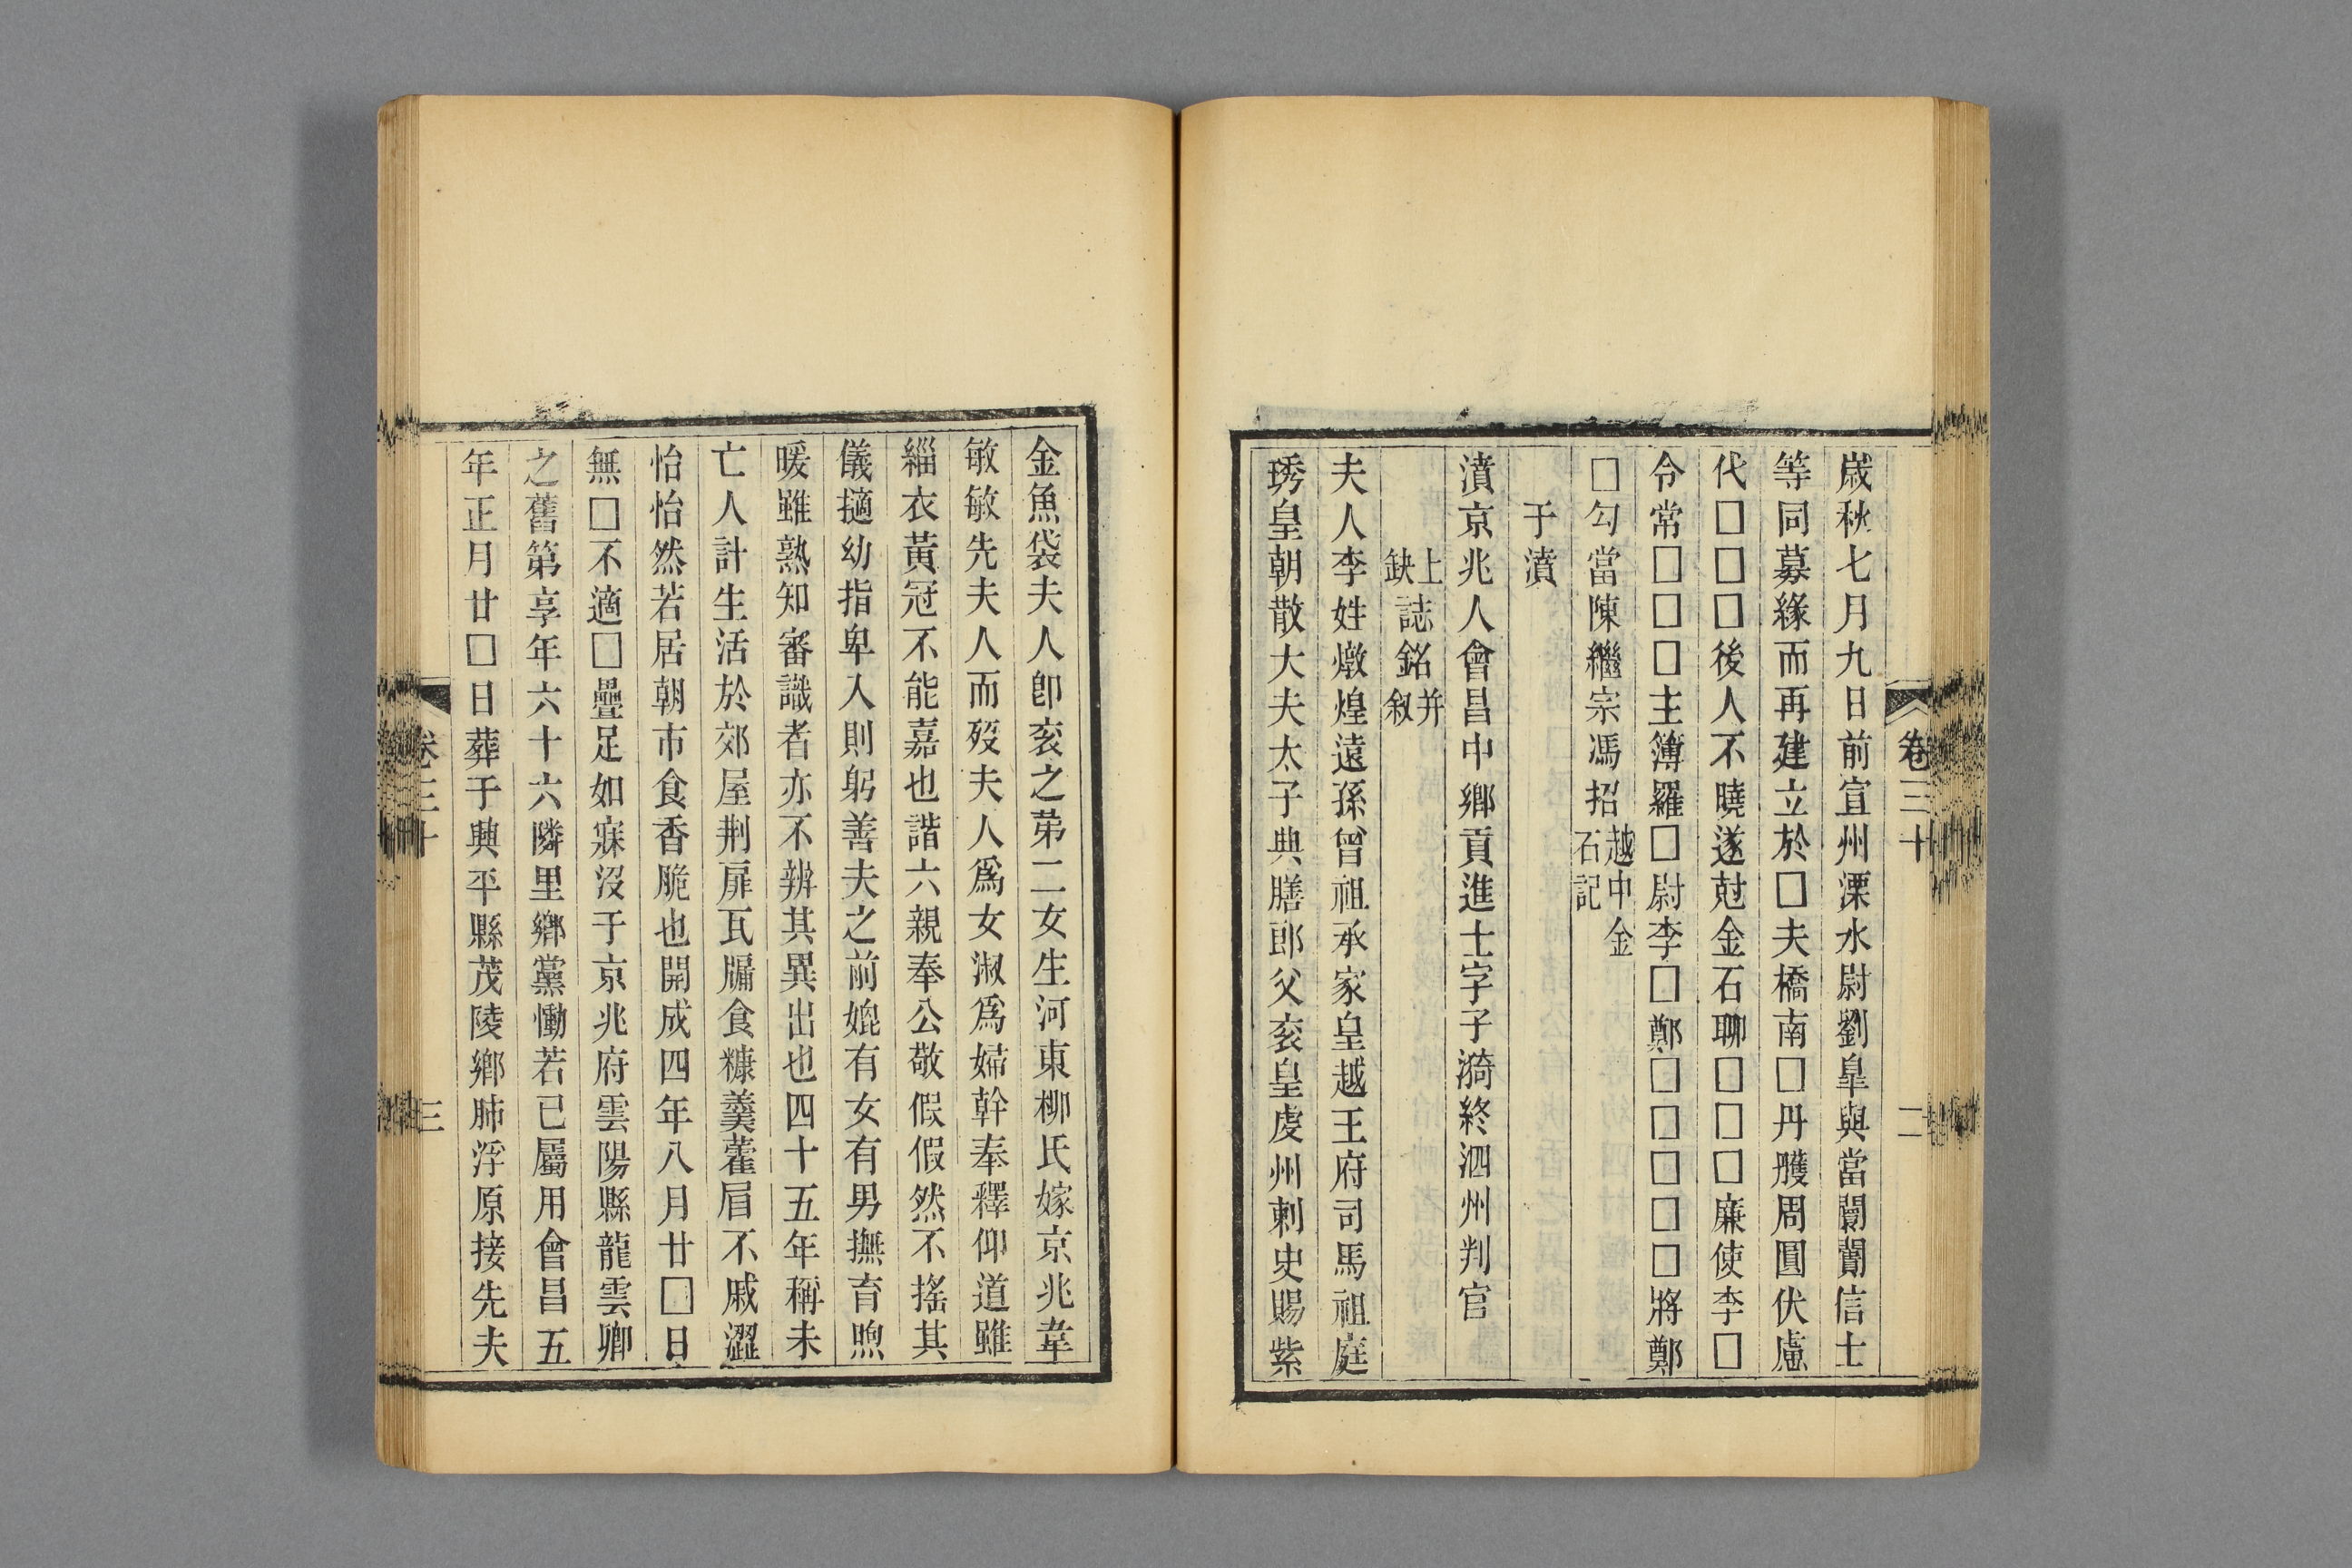 卷三十
二
歲秋七月九日前宣州溧水尉劉臯與當闤闠信士
等同募緣而再建立於□夫橋南□丹雘周圓伏慮
代□□□後人不曉遂尅金石聊□□□廉使李□
令常□□□主簿羅□尉李□鄭□□□□□將鄭
□勾當陳繼宗馮招越中金石記
于濆
濆京兆人會昌中鄉貢進士字子漪終泗州判官
上缺誌銘并叙
夫人李姓燉煌遠孫曾祖承家皇越王府司馬祖庭
琇皇朝散大夫太子典膳郎父衮皇虔州刺史賜紫
金魚袋夫人卽衮之苐二女生河東柳氏嫁京兆韋
敏敏先夫人而歿夫人爲女淑爲婦幹奉釋仰道雖
緇衣黃冠不能嘉也諧六親奉公敬假假然不搖其
儀擿幼指卑入則躬善夫之前娩有女有男撫育煦
暖雖熟知審識者亦不辨其異出也四十五年稱未
亡人計生活於郊屋荆扉瓦牖食糠羹藿眉不戚澀
怡怡然若居朝市食香脆也開成四年八月廿□日
無□不適□疊足如寐沒于京兆府雲陽縣龍雲卿
之舊第享年六十六隣里鄉黨慟若已屬用會昌五
年正月廿□日葬于興平縣茂陵鄉肺浮原接先夫
卷三十
三